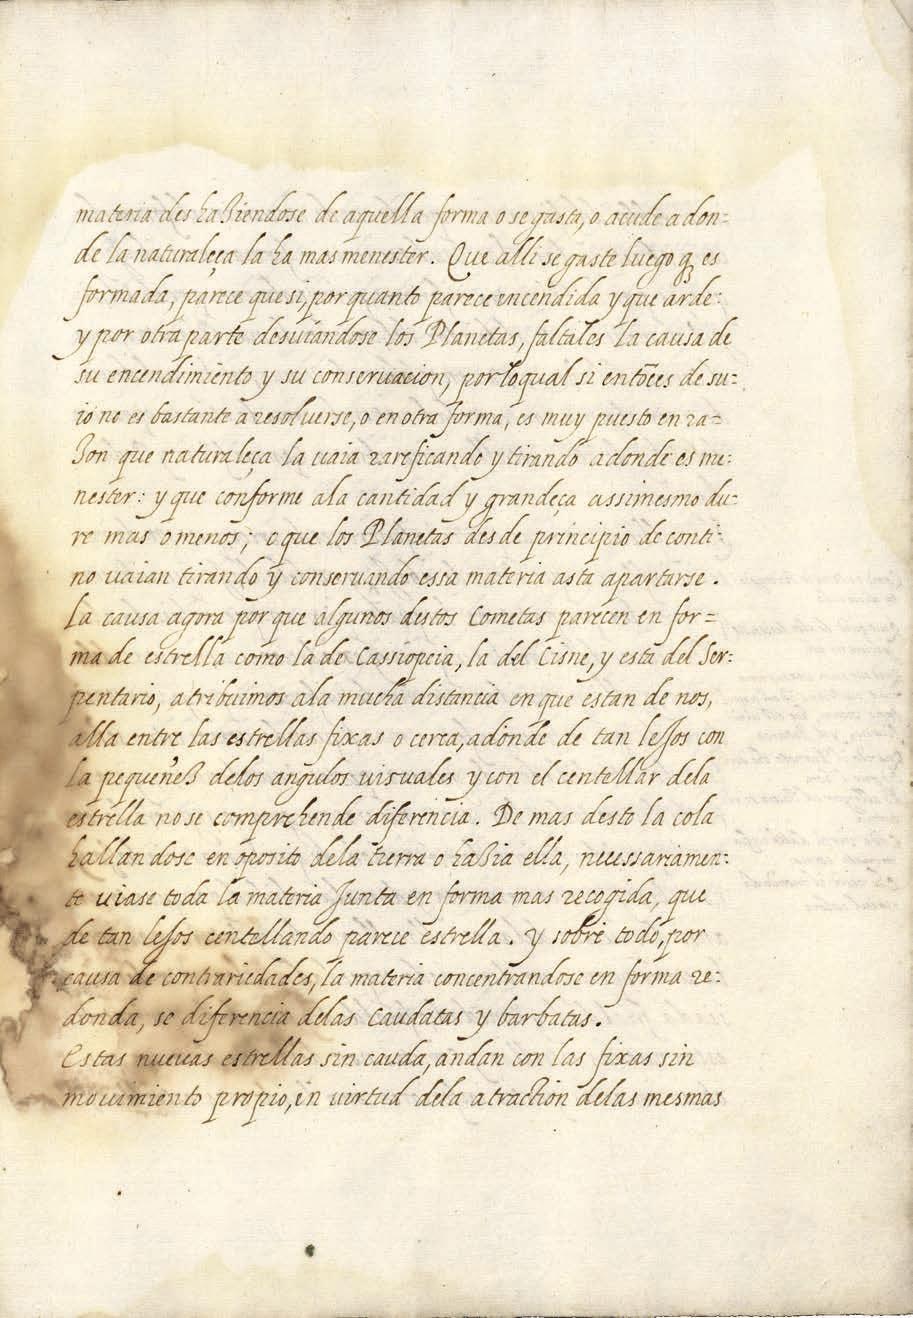 materia deshaziendose de aquella forma o se gasta, o acude a don=
de la naturaleça la ha mas menester. Que alli se gaste luego q̃ es
formada, parece que si, por quanto parece incendida y que arde:
y por otra parte desuiandose los Planetas, faltales la causa de
su encendimiento y su conseruacion, por lo qual si entõces de su=
io no es bastante a resoluerse, o en otra forma, es muy puesto en ra=
zon que naturaleça la uaia rareficando y tirando adonde es me=
nester: y que conforme ala cantidad y grandeça assimesmo du=
re mas o menos; o que los Planetas desde principio de conti=
no uaian tirando y conseruando essa materia asta apartarse.
La causa agora por que algunos destos Cometas parecen en for=
ma de estrella como la de Cassiopeia, la del Cisne, y esta del Ser=
pentario, atribuimos ala mucha distancia en que estan de nos,
alla entre las estrellas fixas o cerca, adonde de tan leJos con
la pequeñez delos angulos visuales y con el centellar dela
estrella no se comprehende diferencia. De mas desto la cola
hallandose en oposito dela tierra o hazia ella, necessariamen=
te uiase toda la materia Junta en forma mas recogida, que
de tan leJos centellando parece estrella. y sobre todo, por
causa de contrariedades, la materia concentrandose en forma re=
donda, se diferencia delas Caudatas y barbatas.
Estas nueuas estrellas sin cauda, andan con las fixas sin
mouimiento propio, en virtud dela atraction delas mesmas